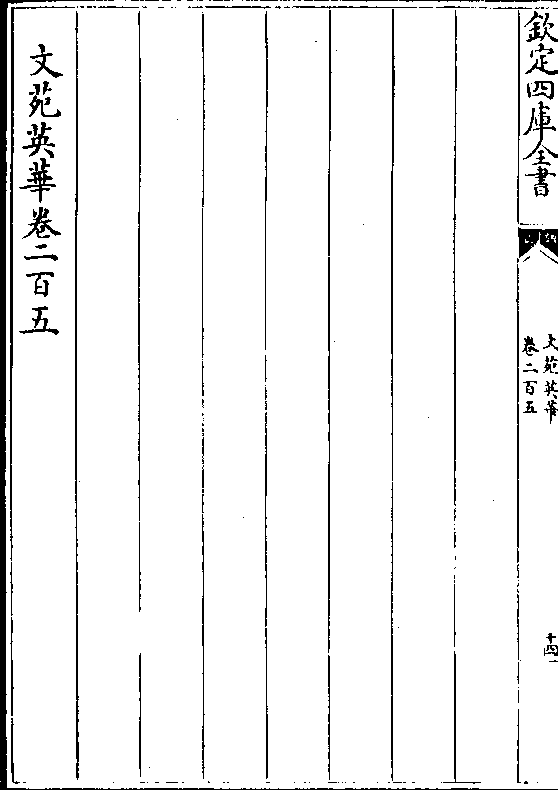 欽定四庫全書
文苑英華
卷二百五
十四
文苑英華卷二百五